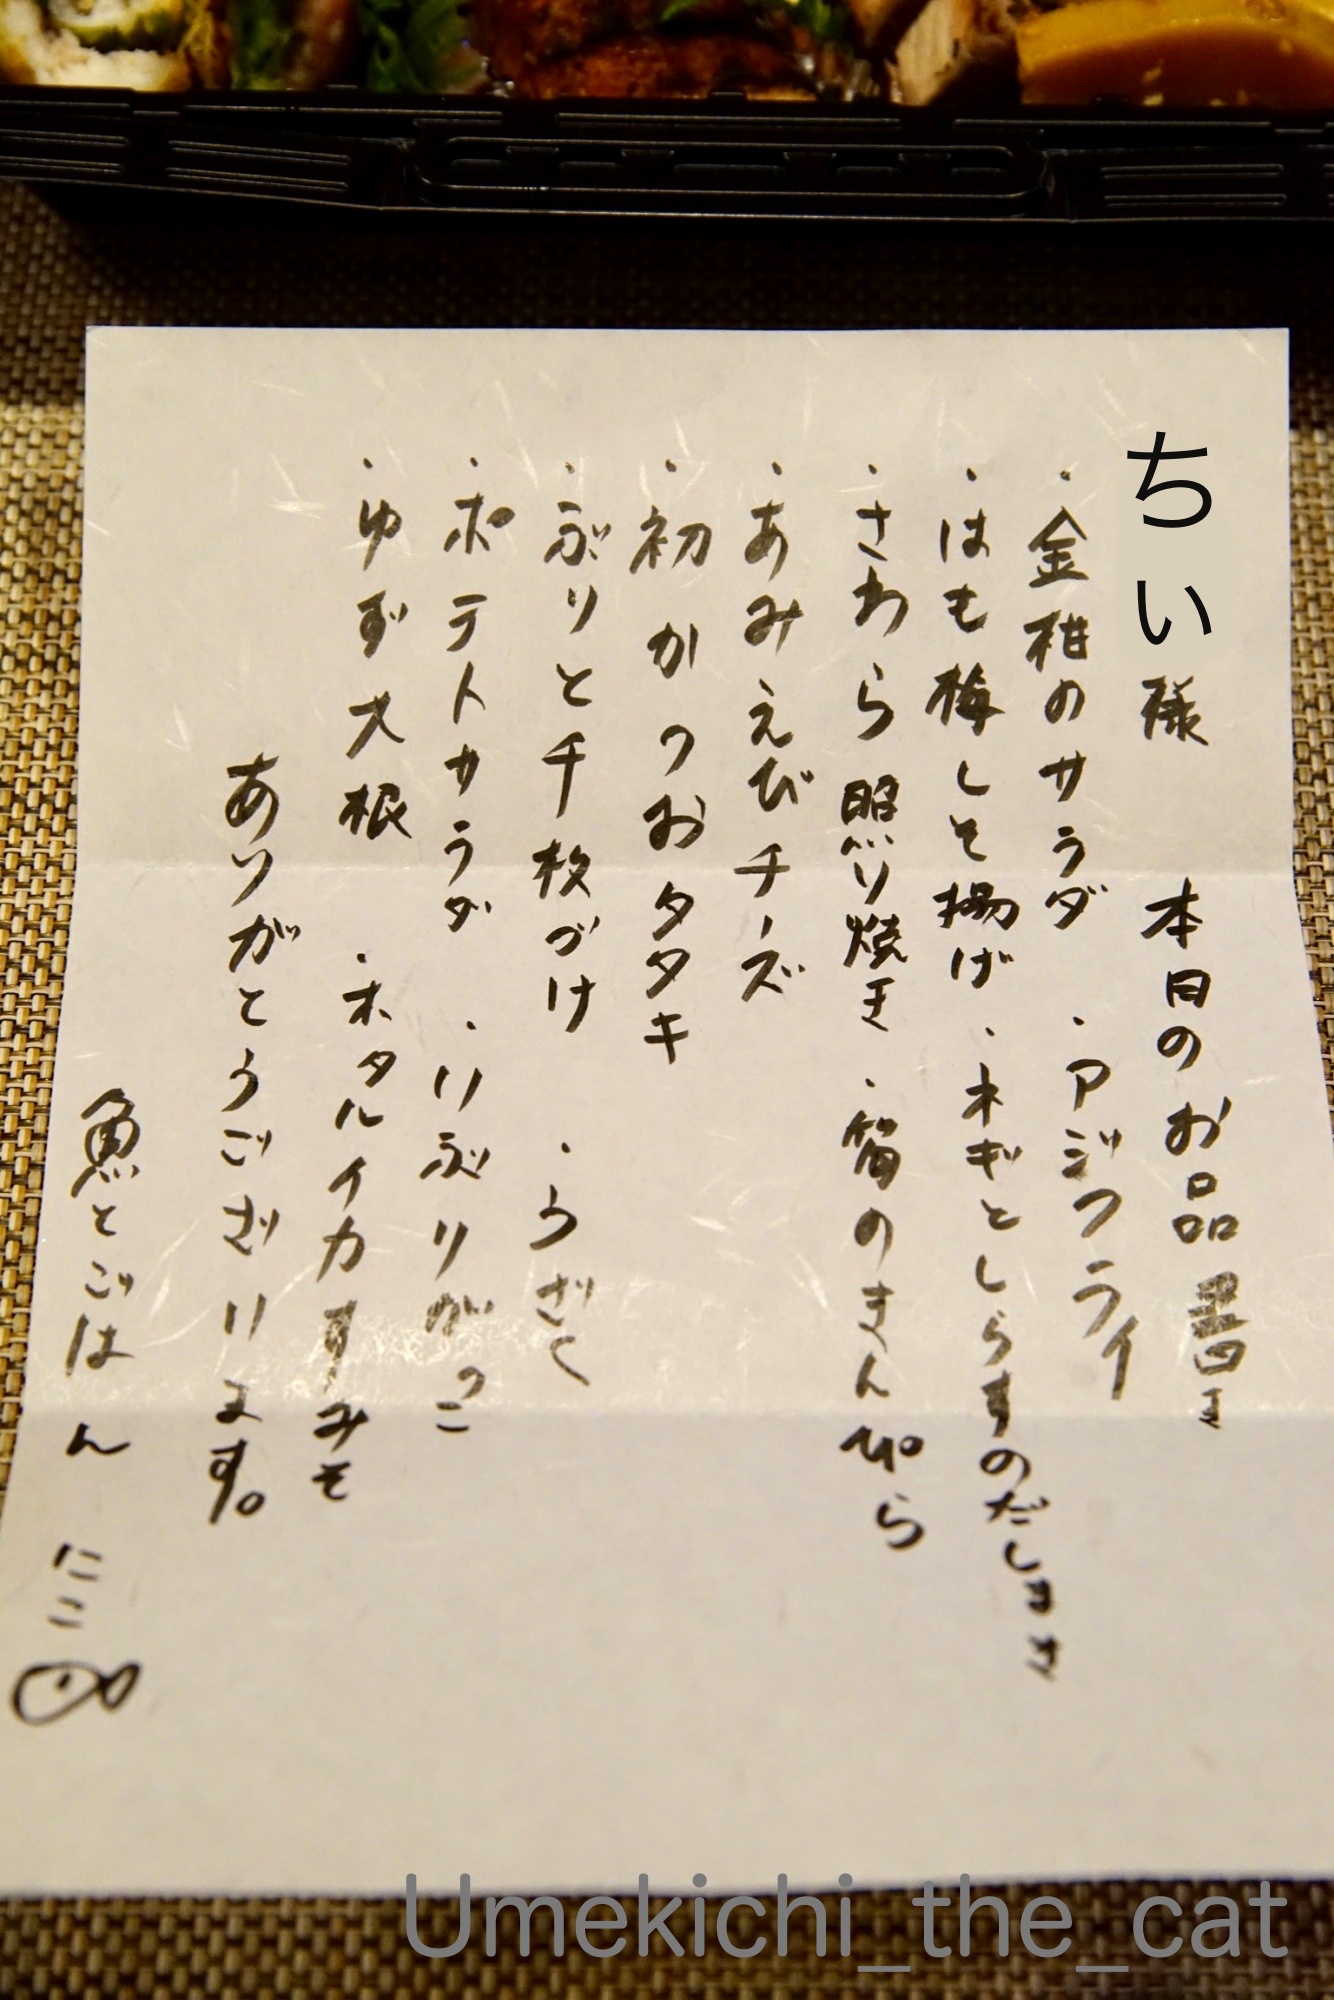 ちぃ様 本日のお品書き
・金柑のサラダ ・アジフライ
・はも梅しそ揚げ ・ネギとしらすのだしまき
・さわら照り焼き ・筍のきんぴら
・あみえびチーズ
・初かつおタタキ
・ぶりと千枚づけ ・うざく
・ポテトサラダ ・いぶりがっこ
・ゆず大根 ・ホタルイカすみそ
ありがとうございます。
魚とごはん にこ
Umekichi_the_cat